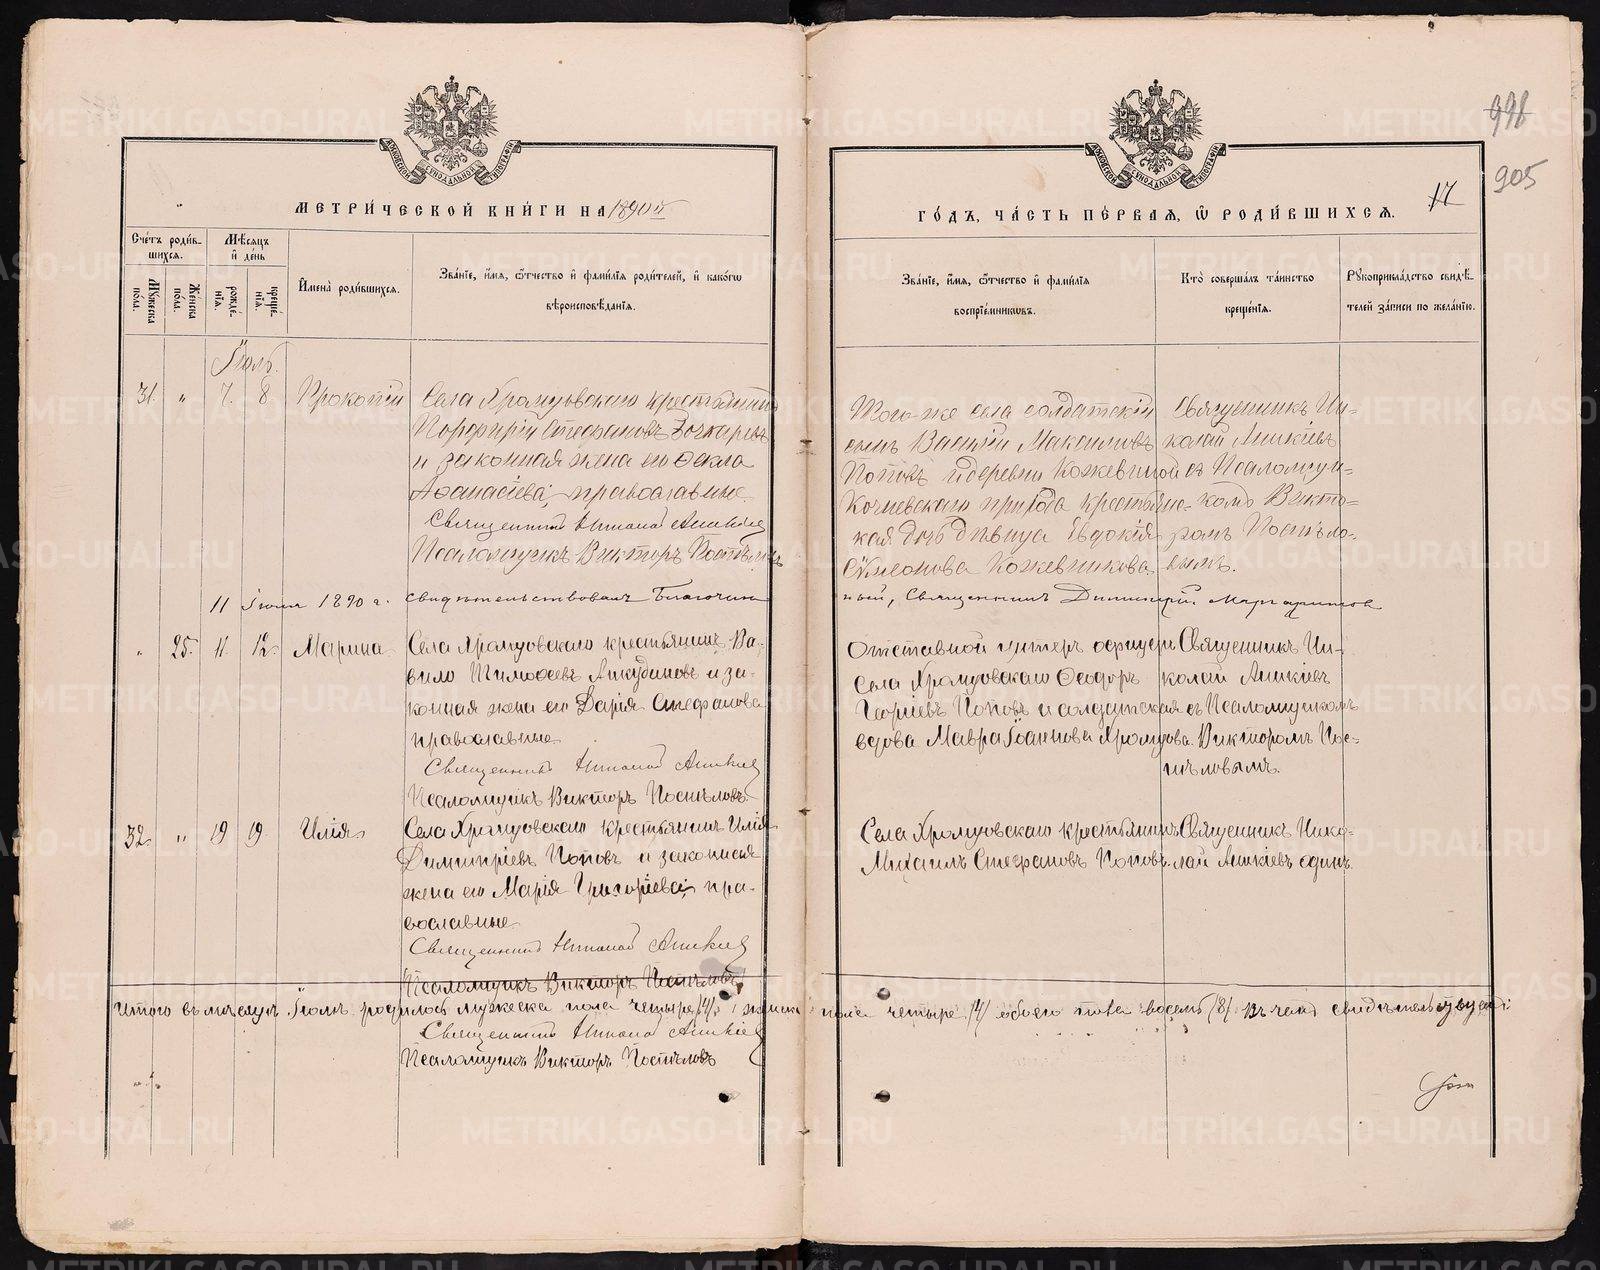 998
905
МОСКОВСКОЙ СѴНОДАЛЬНОЙ ТИПОГРАФІИ
МОСКОВСКОЙ СѴНОДАЛЬНОЙ ТИПОГРАФІИ
17
МЕТРИ́ЧЕСКОЙ КНИ́ГИ НА 1890й
ГО́ДЪ, ЧА́СТЬ ПЕ́РВАЯ, Ѡ РОДИ́ВШИХСЯ.
Сче́тъ роди́в-
шихся.
Мѣ́сяцъ
и҆ де́нь
Мꙋ́жеска по́ла.
Же́нска по́ла.
рожде́-
нїя.
креще́-
нїя.
И҆мена̀ роди́вшихся.
Зва́нїе, и҆́мя, ѻ҆́тчество и҆ фами́лїя роди́телей, и҆ како́гѡ
вѣроисповѣ́данїя.
Зва́нїе, и҆́мя, ѻ҆́тчество и҆ фами́лїя
воспрїе́мникѡвъ.
Кто̀ соверша́лъ та́инство
креще́нїя.
Рꙋкоприкла́дство свидѣ́-
телей за́писи по жела́нїю.
Іюль.
31. „ 7. 8 Прокопій
Села Хромцовскаго крестьянинъ
Порфирій Стефановъ Бочкаревъ
и законная жена его Ѳекла
Аѳанасіева, православные.
Священникъ Николай Аникіев
Псаломщикъ Викторъ Постѣловъ
Того-же села солдатскій
сынъ Василій Максимовъ
Поповъ и деревни Кожевиной
Кочневскаго прихода крестьянс-
кая дочь дѣвица Евдокія
Сѵмеонова Кожевникова.
Священникъ Ни-
колай Аникіевъ
съ Псаломщи-
комъ Викто-
ромъ Постѣло-
вымъ.
11 Іюля 1890 г. свидѣтельствовалъ Благочин
ный, Священникъ Димитрій Маргаритов
„ 25. 11. 12. Марина
Села Хромцовскаго крестьянинъ Ва-
вило Тимоѳеевъ Анкудиновъ и за-
конная жена его Дарія Стефанова
православные
Священникъ Николай Аникіев
Псаломщикъ Викторъ Постѣловъ.
Отставной унтеръ офицеръ
Села Хромцовскаго Ѳеодоръ
Георгіевъ Поповъ и солдатская
вдова Мавра Іоаннова Хромцова.
Священникъ Ни-
колай Аникіевъ
съ Псаломщикомъ
Викторомъ Пос-
тѣловымъ.
32. „ 19 19. Илія
Села Хромцовскаго крестьянинъ Илія
Димитріевъ Поповъ и законная
жена его Марія Григоріева, пра-
вославные.
Священникъ Николай Аникіев
Псаломщикъ Викторъ Постѣловъ
Села Хромцовскаго крестьянинъ
Михаилъ Стефановъ Поповъ.
Священникъ Нико-
лай Аникіевъ одинъ.
Итого въ мѣсяцѣ Іюлѣ родилось мужеска пола четыре /4/, женска пола четыре /4/ обоего пола восемь /8/. Въ чемъ свидѣтельствуемъ:
Священникъ Николай Аникіев
Псаломщикъ Викторъ Постѣловъ
METRIKI.GASO-URAL.RU